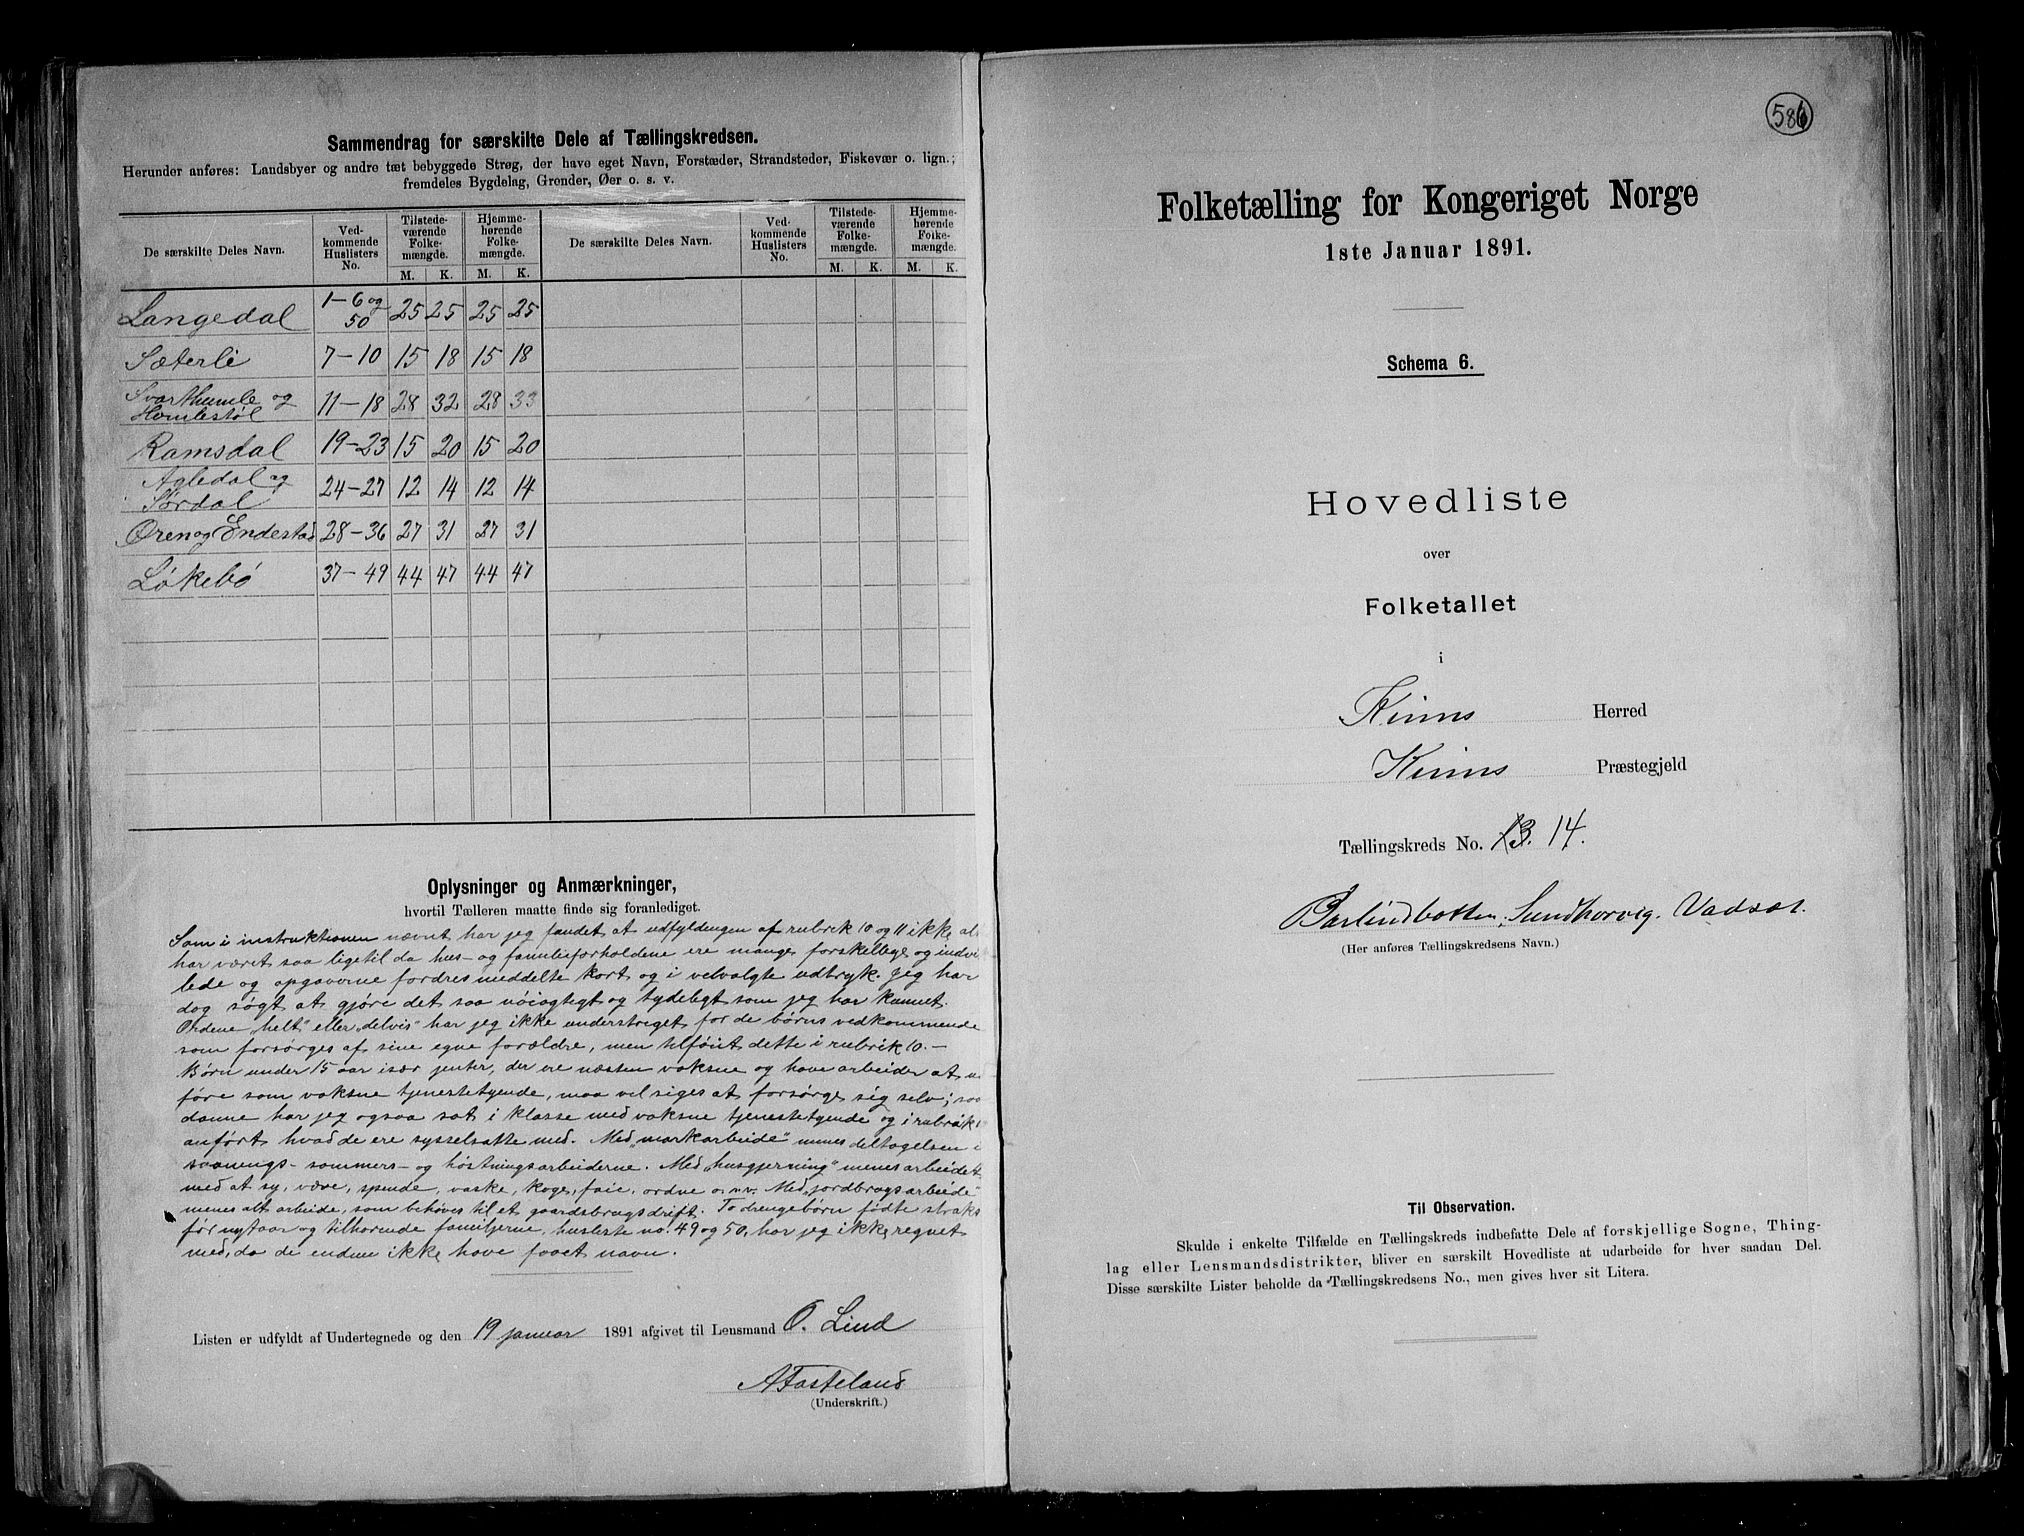 Sammendrag for særskilte Dele af Tællingskredsen.
Herunder anføres: Landsbyer og andre tæt bebyggede Strøg, der have eget Navn, Forstæder, Strandsteder, Fiskevær o. lign.;
fremdeles Bygdelag, Grender, Øer o. s. v.
De særskilte Deles Navn. Ved-kommende Huslisters No. Tilstede-værende Folke-mængde. Hjemme-hørende Folke-mængde. De særskilte Deles Navn. Ved-kommende Huslisters No. Tilstede-værende Folke-mængde. Hjemme-hørende Folke-mængde.
M. K. M. K. M. K. M. K.
Langedal 1-6 og 50 25 25 25 25
Sæterli 7-10 15 18 15 18
Svarthumle og Humlestøl 11-18 28 32 28 33
Ramsdal 19-23 15 20 15 20
Agledal og Sørdal 24-27 12 14 12 14
Øren og Endestad 28-36 27 31 27 31
Løkebø 37-49 44 47 44 47
Oplysninger og Anmærkninger,
hvortil Tælleren maatte finde sig foranlediget.
Som i instruktionen nævnt har jeg fundet at udfyldingen af rubrik 10 og 11 ikke al
har været saa ligetil da hus- og familieforholdene ere mange forskellege og indvi
lede og opgaverne fordres meddelte kort og i velvalgte udtryk. Jeg har
dog søgt at gjøre det saa nöiagtegt og tydeligt som jeg har kunnet.
Ordene „helt" eller „delvis" har jeg ikke understreget for de børns vedkommende
som forsørges af sine egne forældre, men tilføit dette i rubrik 10.-
Børn under 15 aar især jenter, der ere næsten voksne og have arbeider at u
føre som voksne tjenestetyende, maa vel siges at forsørge sig selv; saa
danne har jeg ogsaa sat i klasse med voksne tjenestetyende og i rubrik
anført hvad de ere sysselsatte med. Med „markarbeide" menes deltagelsen i
vaanings- sommers- og høstningsarbeiderne. Med „husgjerning" menes arbeidet
med at sy, væve, spende, vaske, koge, faie, ordne o. s. v. Med „jordbrugsarbeide"
menes alt arbeide, som behøves til et gaardsbrugsdrift. To drengebørn fødte straks
før nytaar og tilhørende familjerne, husliste no. 49 og 50, har jeg ikke regnet
med, da de endnu ikke have faaet navn.
Listen er udfyldt af Undertegnede og den 19 januar 1891 afgivet til Lensmand O. Lind
A Fasteland
(Underskrift.)
586
Folketælling for Kongeriget Norge
1ste Januar 1891.
Schema 6.
Hovedliste
over
Folketallet
i
Kinns Herred
Kinns Præstegjeld
Tællingskreds No. 13. 14.
Barlindbotten, Sundhorvig. Vadsæt.
(Her anføres Tællingskredsens Navn.)
Til Observation.
Skulde i enkelte Tilfælde en Tællingskreds indbefatte Dele af forskjellige Sogne, Thing-
lag eller Lensmandsdistrikter, bliver en særskilt Hovedliste at udarbeide for hver saadan Del.
Disse særskilte Lister beholde da Tællingskredsens No., men gives hver sit Litera.